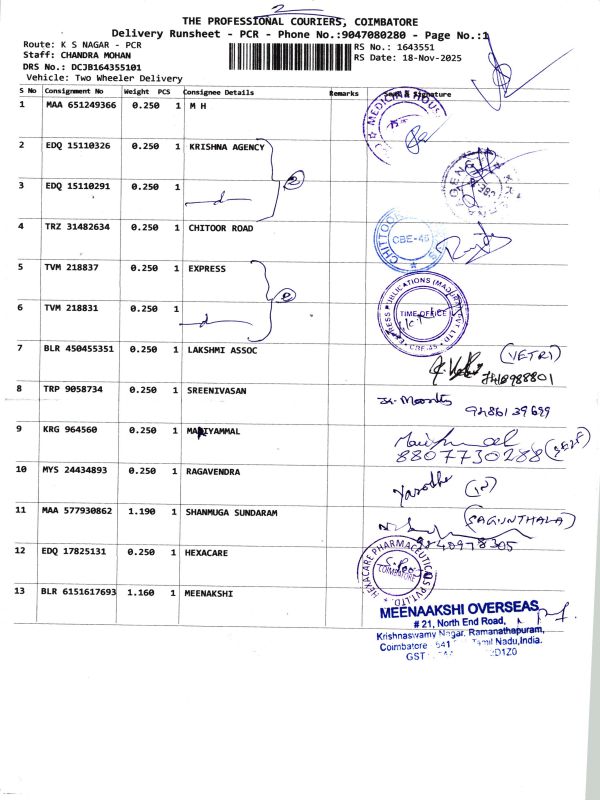 2
THE PROFESSIONAL COURIERS, COIMBATORE
Delivery Runsheet - PCR - Phone No.:9047080280 - Page No.:1
Route: K S NAGAR - PCR
RS No.: 1643551
Staff: CHANDRA MOHAN
RS Date: 18-Nov-2025
DRS No.: DCJB164355101
Vehicle: Two Wheeler Delivery
S No Consignment No Weight PCS Consignee Details Remarks Signature
1 MAA 651249366 0.250 1 M H
MEDICINE HOUS
2 EDQ 15110326 0.250 1 KRISHNA AGENCY
3 EDQ 15110291 0.250 1
2
AGEN
CBE
4 TRZ 31482634 0.250 1 CHITOOR ROAD
CHITTOO
CBE-45
5 TVM 218837 0.250 1 EXPRESS
6 TVM 218831 0.250 1
EXPRESS PUBLICATIONS (MADURAI) PVT LTD
TIME OFFICE
CBE-45
7 BLR 450455351 0.250 1 LAKSHMI ASSOC
(VETRI)
8 TRP 9058734 0.250 1 SREENIVASAN
9486139699
9 KRG 964560 0.250 1 MARIYAMMAL
8807730288
10 MYS 24434893 0.250 1 RAGAVENDRA
Yasodha
11 MAA 577930862 1.190 1 SHANMUGA SUNDARAM
(SAGUNTHALA)
12 EDQ 17825131 0.250 1 HEXACARE
HEXACARE PHARMACEUTICALS PVT.LTD.
COIMBATORE
13 BLR 6151617693 1.160 1 MEENAKSHI
MEENAAKSHI OVERSEAS
# 21, North End Road,
Krishnaswamy Nagar, Ramanathapuram,
Coimbatore 641 Tamil Nadu,India.
GST D1Z0